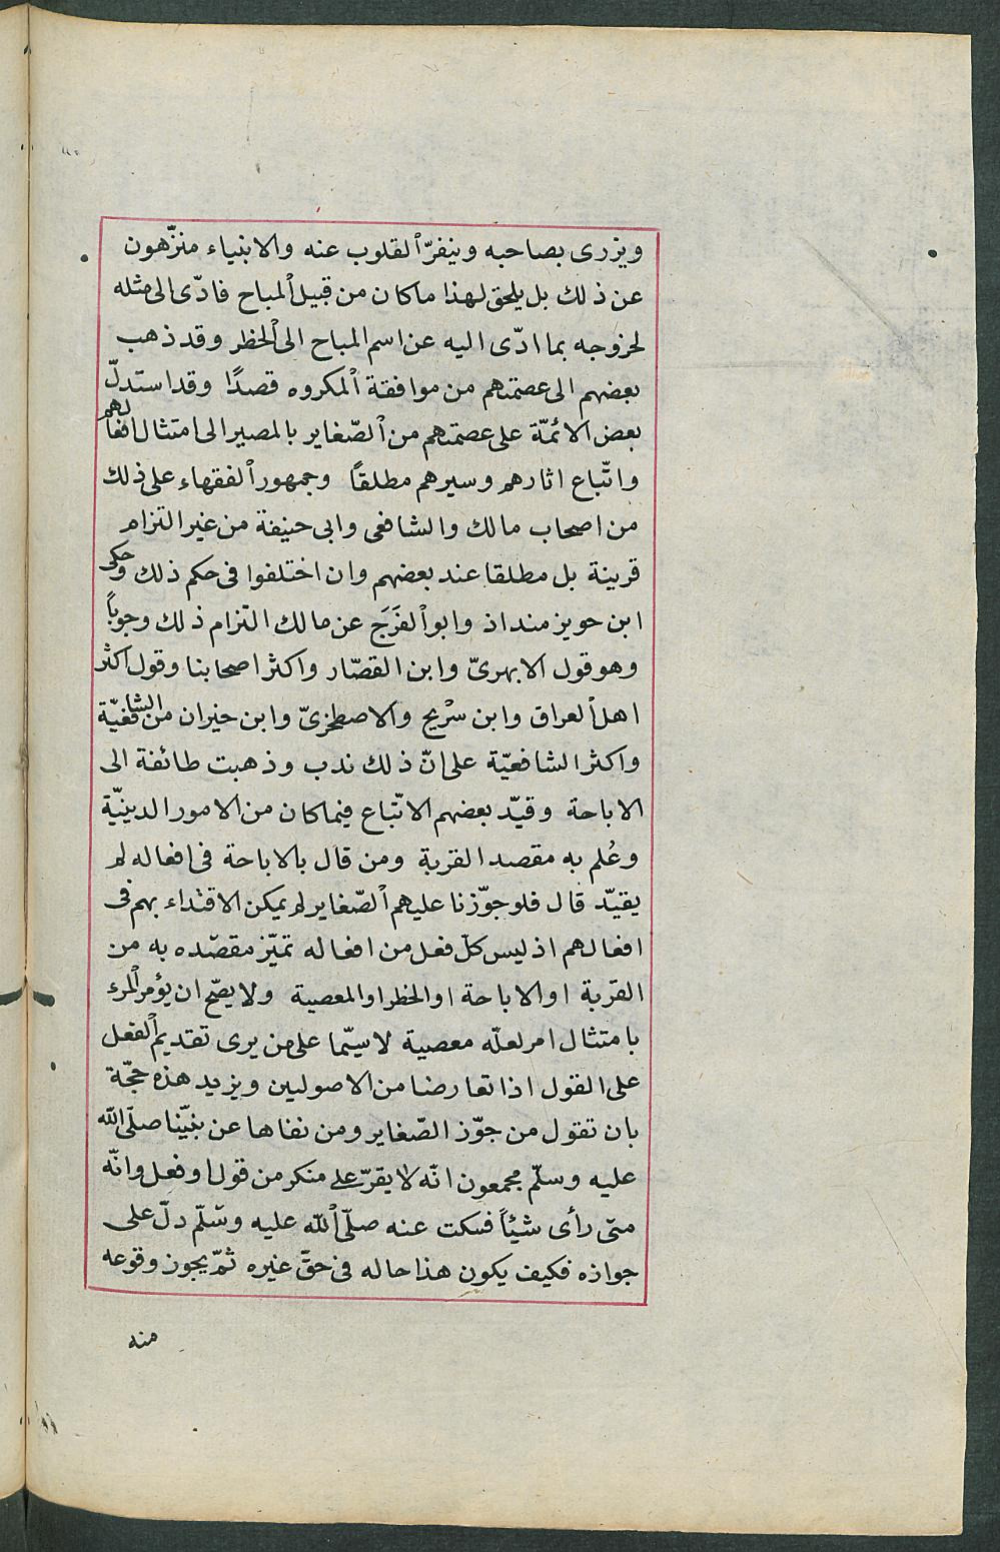 ويزرى بصاحبه وينفرّ القلوب عنه والانبياء منزّهون
عن ذلك بل يلحق لهذا ماكان من قبيل المباح فادّى الى مثله
لخروجه بما ادّى اليه عن اسم المباح الى الحظر وقد ذهب
بعضهم الى عصمتهم من موافقة المكروه قصدًا وقد استدلّ
بعض الائمّة على عصمتهم من الصّغاير بالمصير الى امتثال افعالهم
واتّباع اثارهم وسيرهم مطلقاً وجمهور الفقهاء على ذلك
من اصحاب مالك والشافعى وابى حنيفة من غير التزام
قرينة بل مطلقا عند بعضهم وان اختلفوا فى حكم ذلك وحكى
ابن حويز منداذ وابو الفَرَج عن مالك التزام ذلك وجوباً
وهو قول الابهرىّ وابن القصّار واكثر اصحابنا وقول اكثر
اهل العراق وابن سُريج والاصطخرىّ وابن خيران من الشافعيّة
واكثر الشافعيّة على انّ ذلك ندب وذهبت طائفة الى
الاباحة وقيّد بعضهم الاتّباع فيما كان من الامور الدينيّة
وعُلم به مقصد القربة ومن قال بالاباحة فى افعاله لم
يقيّد قال فلو جوّزنا عليهم الصّغاير لم يمكن الاقتداء بهم فى
افعالهم اذ ليس كلّ فعل من افعاله تميّز مقصده به من
القربة او الاباحة او الحظر او المعصية ولا يصّح ان يؤمر المرء
بامتثال امر لعلّه معصية لا سيّما على من يرى تقديم الفعل
على القول اذا تعارضا من الاصوليين ويزيد هذه حجّة
بان تقول من جوّز الصّغاير ومن نفاها عن نبيّنا صلّى الله
عليه وسلّم مجمعون انّه لا يقرّ على منكر من قول او فعل وانّه
متى رأى شيئاً فسكت عنه صلّى الله عليه وسّلم دلّ على
جوازه فكيف يكون هذا حاله فى حقّ غيره ثمّ يجوز وقوعه
منه